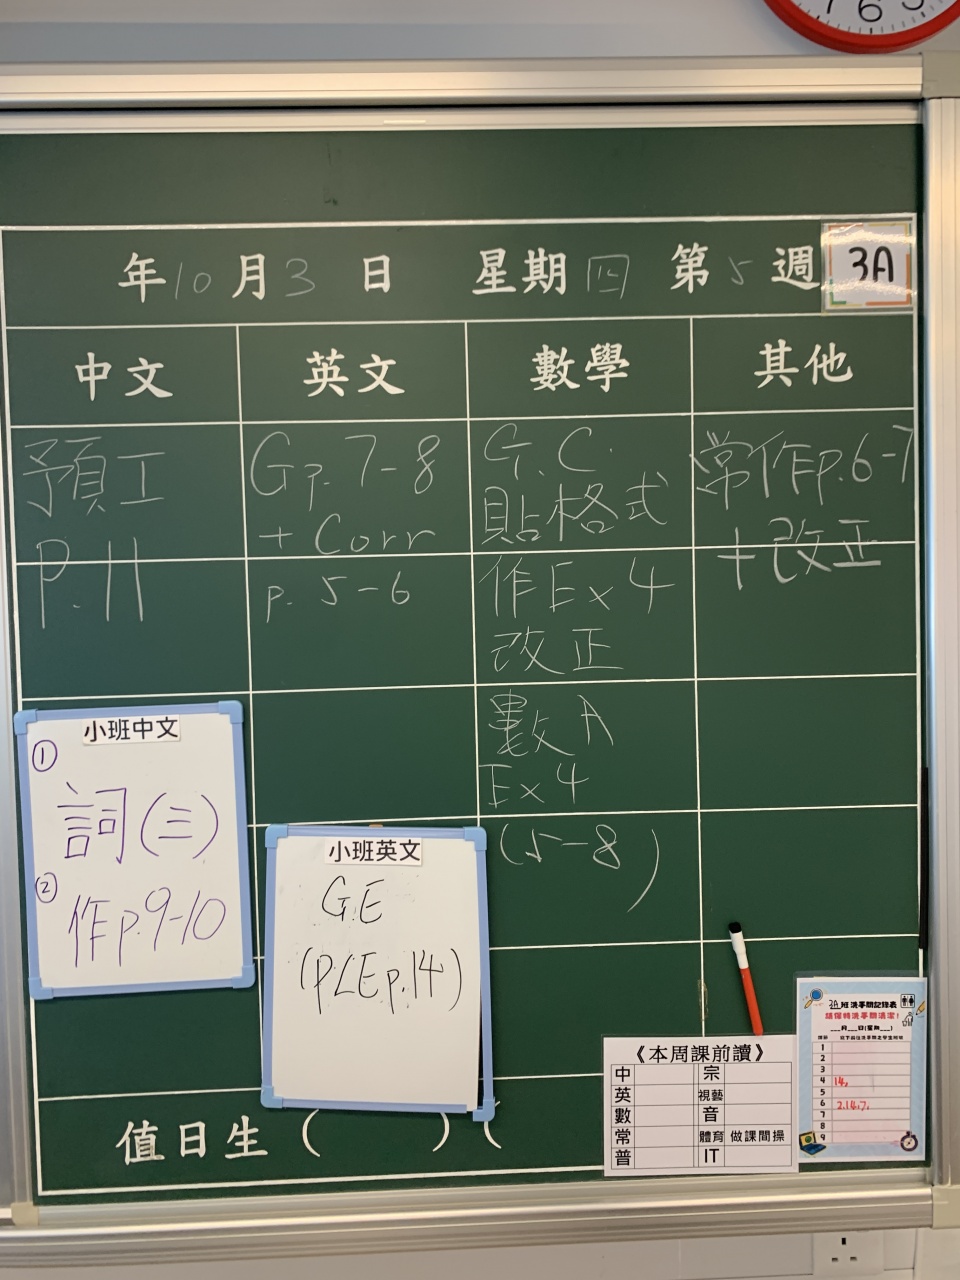 7 6 5
年10月3日 星期四 第5週 3A
中文 英文 數學 其他
預工
P.11
Gp. 7-8
+ Corr
p. 5-6
G.C.
貼格式
作Ex4
改正
數A
Ex4
(5-8)
常作p.6-7
+改正
小班中文
① 詞(三)
② 作p.9-10
小班英文
G.E
(PLEp.14)
值日生 ( ) (
《本周課前讀》
中 宗
英 視藝
數 音
常 體育 做課間操
普 IT
3A班洗手間記錄表
請保持洗手間清潔!
月 日(星期 )
1
2
3
4 14,
5
6 2,14,7,
7
8
9